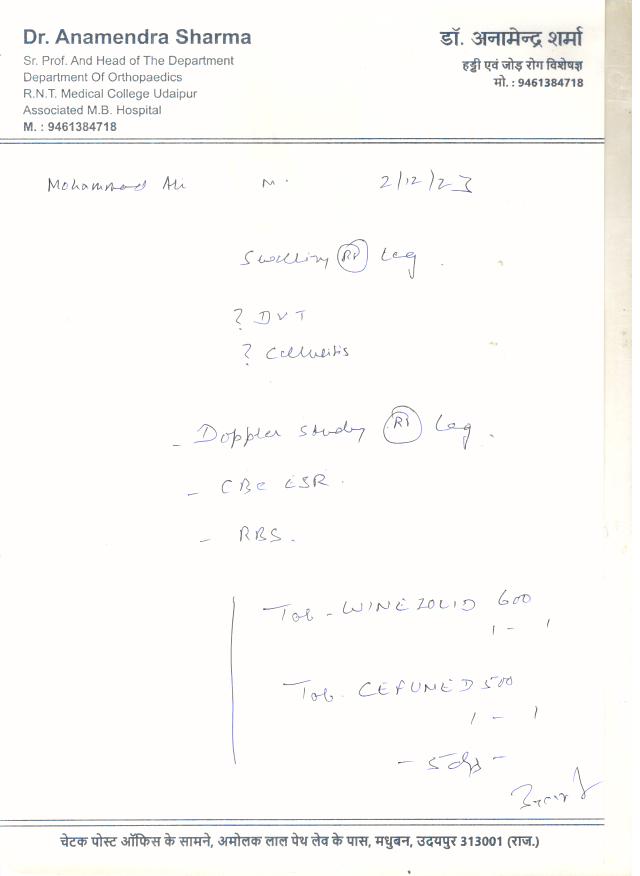 Dr. Anamendra Sharma
Sr. Prof. And Head of The Department
Department Of Orthopaedics
R.N.T. Medical College Udaipur
Associated M.B. Hospital
M. : 9461384718
डॉ. अनामेन्द्र शर्मा
हड्डी एवं जोड़ रोग विशेषज्ञ
मो. : 9461384718
Mohammad Ali M. 2/12/23
Swelling Rt Leg.
? DVT
? Cellulitis
- Doppler study Rt Leg.
- CBC ESR.
- RBS.
Tab - WINEZOLID 600
1 - 1
Tab. CEFUNED 500
1 - 1
- 5 days -
चेटक पोस्ट ऑफिस के सामने, अमोलक लाल पेथ लेव के पास, मधुबन, उदयपुर 313001 (राज.)